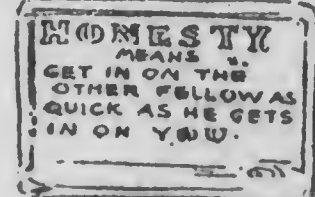 HONESTY
MEANS
GET IN ON THE
OTHER FELLOW AS
QUICK AS HE GETS
IN ON YOU.